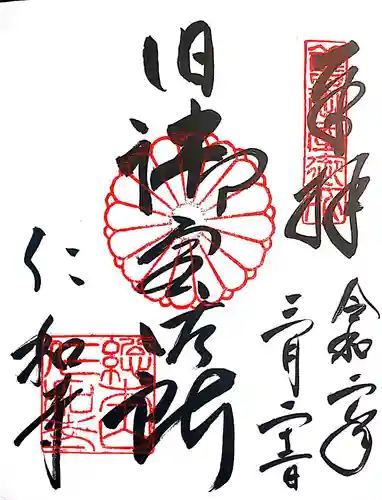 奉拝
令和二年
三月二十二日
旧御室御所
仁和寺